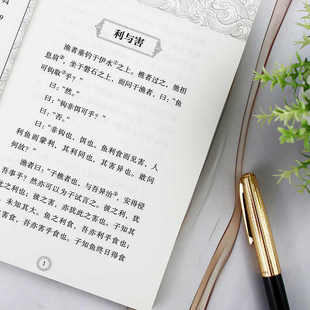 利与害
渔者垂钓于伊水①之上。樵者过之，弛担
息肩②，坐于磐石之上，而问于渔者，曰：“鱼
可钩取乎？”
曰：“然。”
曰：“钩非饵可乎？”
曰：“否。”
曰：“非钩也，饵也。鱼利食而见害，人
利鱼而蒙利，其利同也，其害异也。敢问
何故？”
渔者曰：“子樵者也，与吾异治，安得侵
吾事乎？然亦可以为子试言之。彼之利，犹
此之利也；彼之害，亦犹此之害也。子知其
，未知其大。鱼之利食，吾亦利乎食也；
害食，吾亦害乎食也。子知鱼终日得食
1